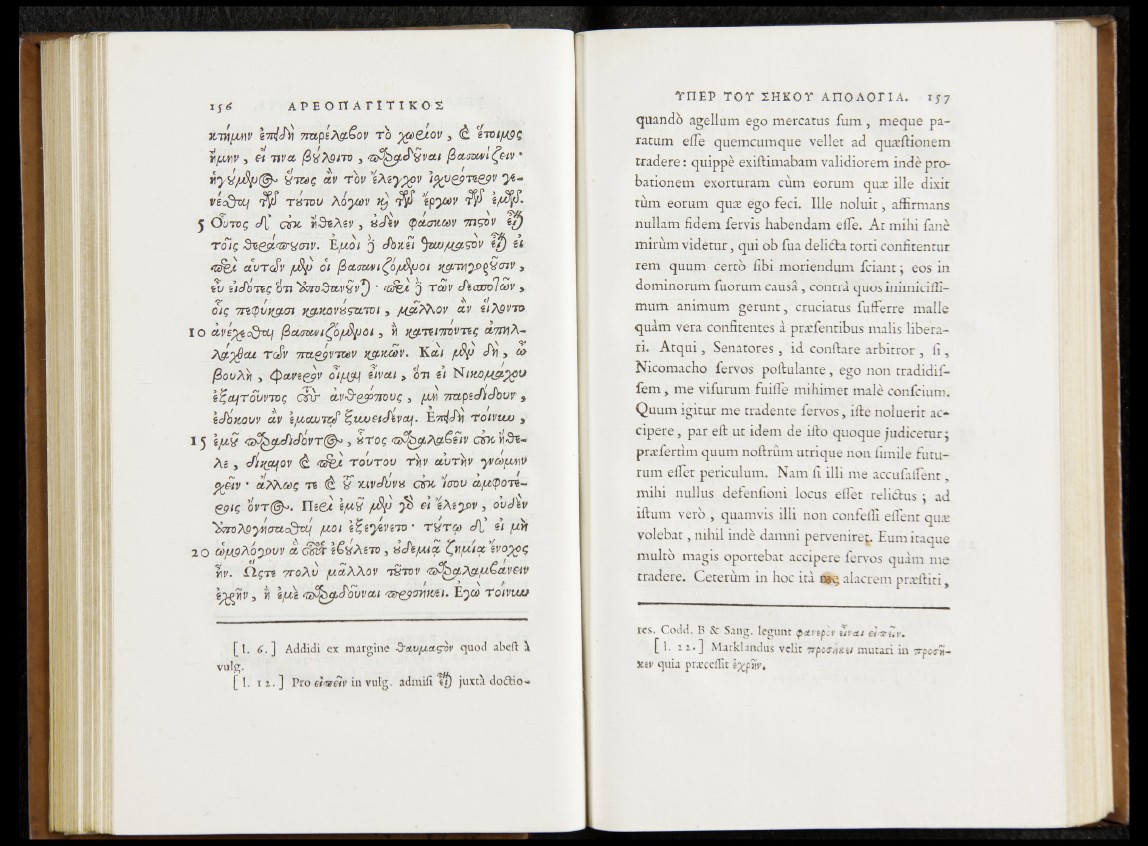 156 ΑΡΕΟΠΑΓΙΤΙΚΟΣ
κτήμην ἐπειδὴ παρέλαβον τὸ χωρίον, καὶ ἕτοιμος
ἤμην, εἴ τινα βούλοιτο, παραδοῦναι βασανίζειν·
ἡγούμενος οὕτως ἂν τὸν ἔλεγχον ἰσχυρότερον γε-
νέσθαι τῶν τούτου λόγων καὶ τῶν ἔργων τῶν ἐμῶν.
5 Οὗτος δ' οὐκ ἤθελεν, οὐδὲν φάσκων πιστὸν εἶναι
τοῖς θεράπουσιν. Ἐμοὶ δὲ δοκεῖ θαυμαστὸν εἶναι εἰ
περὶ αὑτῶν μὲν οἱ βασανιζόμενοι κατηγοροῦσιν,
εὖ εἰδότες ὅτι ἀποθανοῦνται· περὶ δὲ τῶν δεσποτῶν,
οἷς πεφύκασι κακονούστατοι, μᾶλλον ἂν εἵλοντο
10 ἀνέχεσθαι βασανιζόμενοι, ἢ κατειπόντες ἀπηλ-
λάχθαι τῶν παρόντων κακῶν. Καὶ μὲν δὴ, ὦ
βουλὴ, φανερὸν οἶμαι εἶναι, ὅτι εἰ Νικομάχου
ἐξαιτοῦντος τοὺς ἀνθρώπους, μὴ παρεδίδουν,
ἐδόκουν ἂν ἐμαυτῷ ξυνειδέναι. Ἐπειδὴ τοίνυν
15 ἐμοῦ παραδιδόντος, οὗτος παραλαβεῖν οὐκ ἤθε-
λε, δίκαιον καὶ περὶ τούτου τὴν αὐτὴν γνώμην
σχεῖν· ἄλλως τε καὶ τοῦ κινδύνου οὐκ ἴσου ἀμφοτέ-
ροις ὄντος. Περὶ ἐμοῦ μὲν γὰρ εἰ ἔλεγον, οὐδὲν
ἀπολογήσασθαί μοι ἐξεγένετο· τούτῳ δ' εἰ μὴ
20 ὡμολόγουν ἃ οὗτος ἐβούλετο, οὐδεμιᾷ ζημίᾳ ἔνοχος
ἦν. Ὥστε πολὺ μᾶλλον τοῦτον παραλαμβάνειν
ἐχρῆν, ἢ ἐμὲ παραδοῦναι προσήκει. Ἐγὼ τοίνυν
[ l. 6. ] Addidi ex margine θαυμαστὸν quod abest à
vulg.
[ l. 12. ] Pro εἰπεῖν in vulg. admisi εἶναι juxtà doctio-
ΥΠΕΡ ΤΟΥ ΣΗΚΟΥ ΑΠΟΛΟΓΙΑ. 157
quandò agellum ego mercatus ſum, meque pa-
ratum eſſe quemcumque vellet ad quæſtionem
tradere: quippè exiſtimabam validiorem indè pro-
bationem exorturam cùm eorum quæ ille dixit
tùm eorum quæ ego feci. Ille noluit, affirmans
nullam fidem ſervis habendam eſſe. At mihi ſanè
mirùm videtur, qui ob ſua delicta torti confitentur
rem quum certò ſibi moriendum ſciant; eos in
dominorum ſuorum causâ, contrà quos inimiciſſi-
mum animum gerunt, cruciatus ſufferre malle
quàm vera confitentes à præſentibus malis libera-
ri. Atqui, Senatores, id conſtare arbitror, ſi,
Nicomacho ſervos poſtulante, ego non tradidiſ-
ſem, me viſurum fuiſſe mihimet malè conſcium.
Quum igitur me tradente ſervos, iſte noluerit ac-
cipere, par eſt ut idem de iſto quoque judicetur;
præſertìm quum noſtrûm utrique non ſimile futu-
rum eſſet periculum. Nam ſi illi me accuſaſſent,
mihi nullus defenſioni locus eſſet relictus; ad
iſtum verò, quamvis illi non confeſſi eſſent quæ
volebat, nihil indè damni perveniret. Eum itaque
multò magis oportebat accipere ſervos quàm me
tradere. Ceterùm in hoc ità me alacrem præſtiti,
res. Codd. B & Sang. legunt φανερὸν εἶναι εἰπεῖν.
[ l. 22. ] Marklandus velit προσήκει mutari in προσῆ-
κεν quia præceſſit ἐχρῆν.